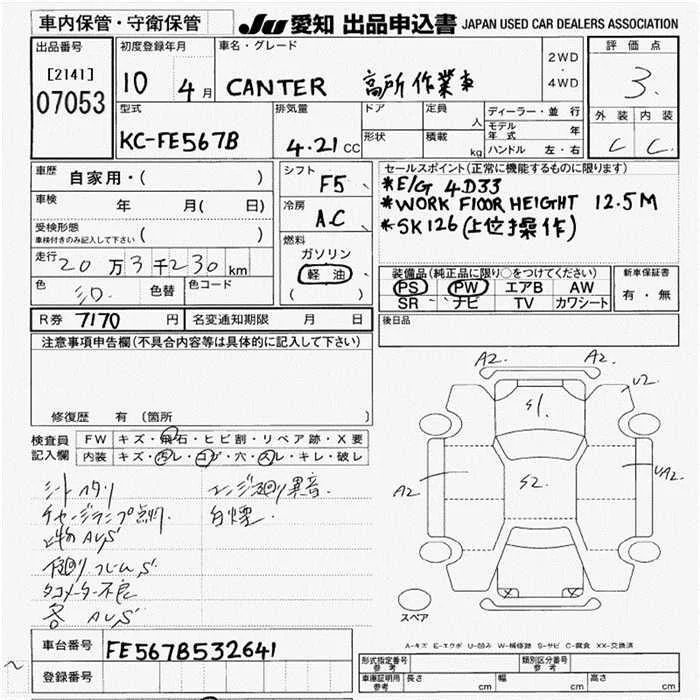 車内保管・守衛保管 JU 愛知 出品申込書 JAPAN USED CAR DEALERS ASSOCIATION
出品番号 初度登録年月 車名・グレード 評価点
[2141] 10 4月 CANTER 高所作業車 2WD ・ 4WD 3.
07053
型式 排気量 ドア 定員 人 ディーラー・並行 外装 内装
KC-FE567B 4.21 CC 形状 積載 kg モデル年式 年 C C
ハンドル 左・右
車歴 自家用・( ) シフト F5 セールスポイント(正常に機能するものに限ります)
車検 年 月( 日) 冷房 AC *E/G 4D33
受検形態 車検付きのみ記入して下さい ( ) *WORK FLOOR HEIGHT 12.5M
走行 20万3千230km 燃料 ガソリン *SK126(上位操作)
色 色替 色コード 軽油 ( )
装備品(純正品に限り○をつけてください) 新車保証書
PS PW エアB AW 有・無
SR ナビ TV カワシート
R券 7170円 名変通知期限 月 日 後日品
注意事項申告欄(不具合内容等は具体的に記入して下さい)
修復歴 有 (箇所
検査員記入欄 FW キズ・飛石・ヒビ割・リペア跡・X要
内装 キズ・汚レ・コゲ・穴・スレ・キレ・破レ
A2. A2.
U2.
S1.
A2 S2. UA2.
X X
シートヘタリ エンジン廻り異音
チャージランプ点灯. 白煙.
上物 AUS
下廻り フレームS
タコメーター不良
各 AUS
スペア
A-キズ E-エクボ U-凹み W-補修跡 S-サビ C-腐食 XX-交換済
車台番号 FE567B532641
登録番号
形式指定番号 参考 類別区分番号 参考
車庫証明用 参考 長さ cm 幅 cm 高さ cm